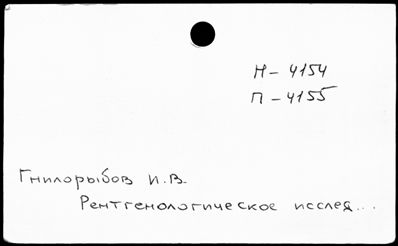 Н - 4154
П - 4155
Гнилорыбов И.В.
Рентгенологическое исслед...